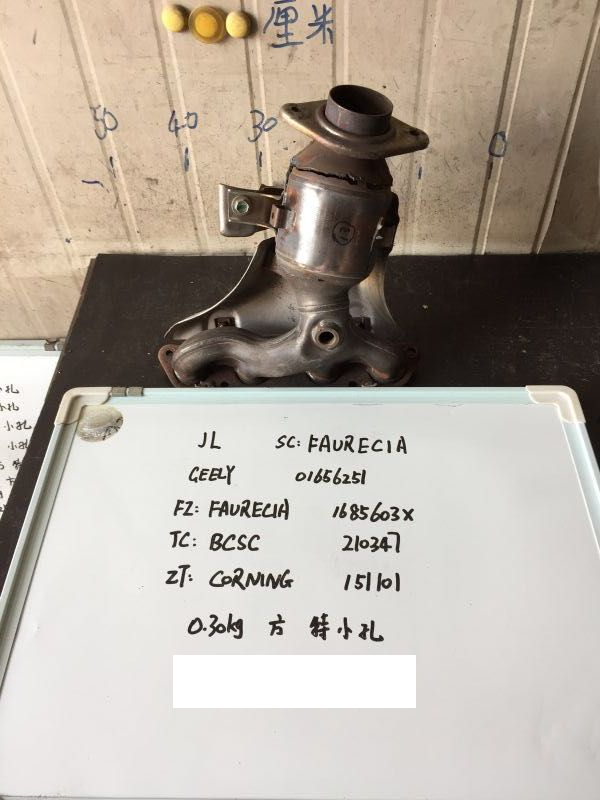 厘米
50 40 30 0
JL SC: FAURECIA
GEELY 01656251
FZ: FAURECIA 1685603X
TC: BCSC 210347
ZT: CORNING 151101
0.30kg 方 特小孔
小孔